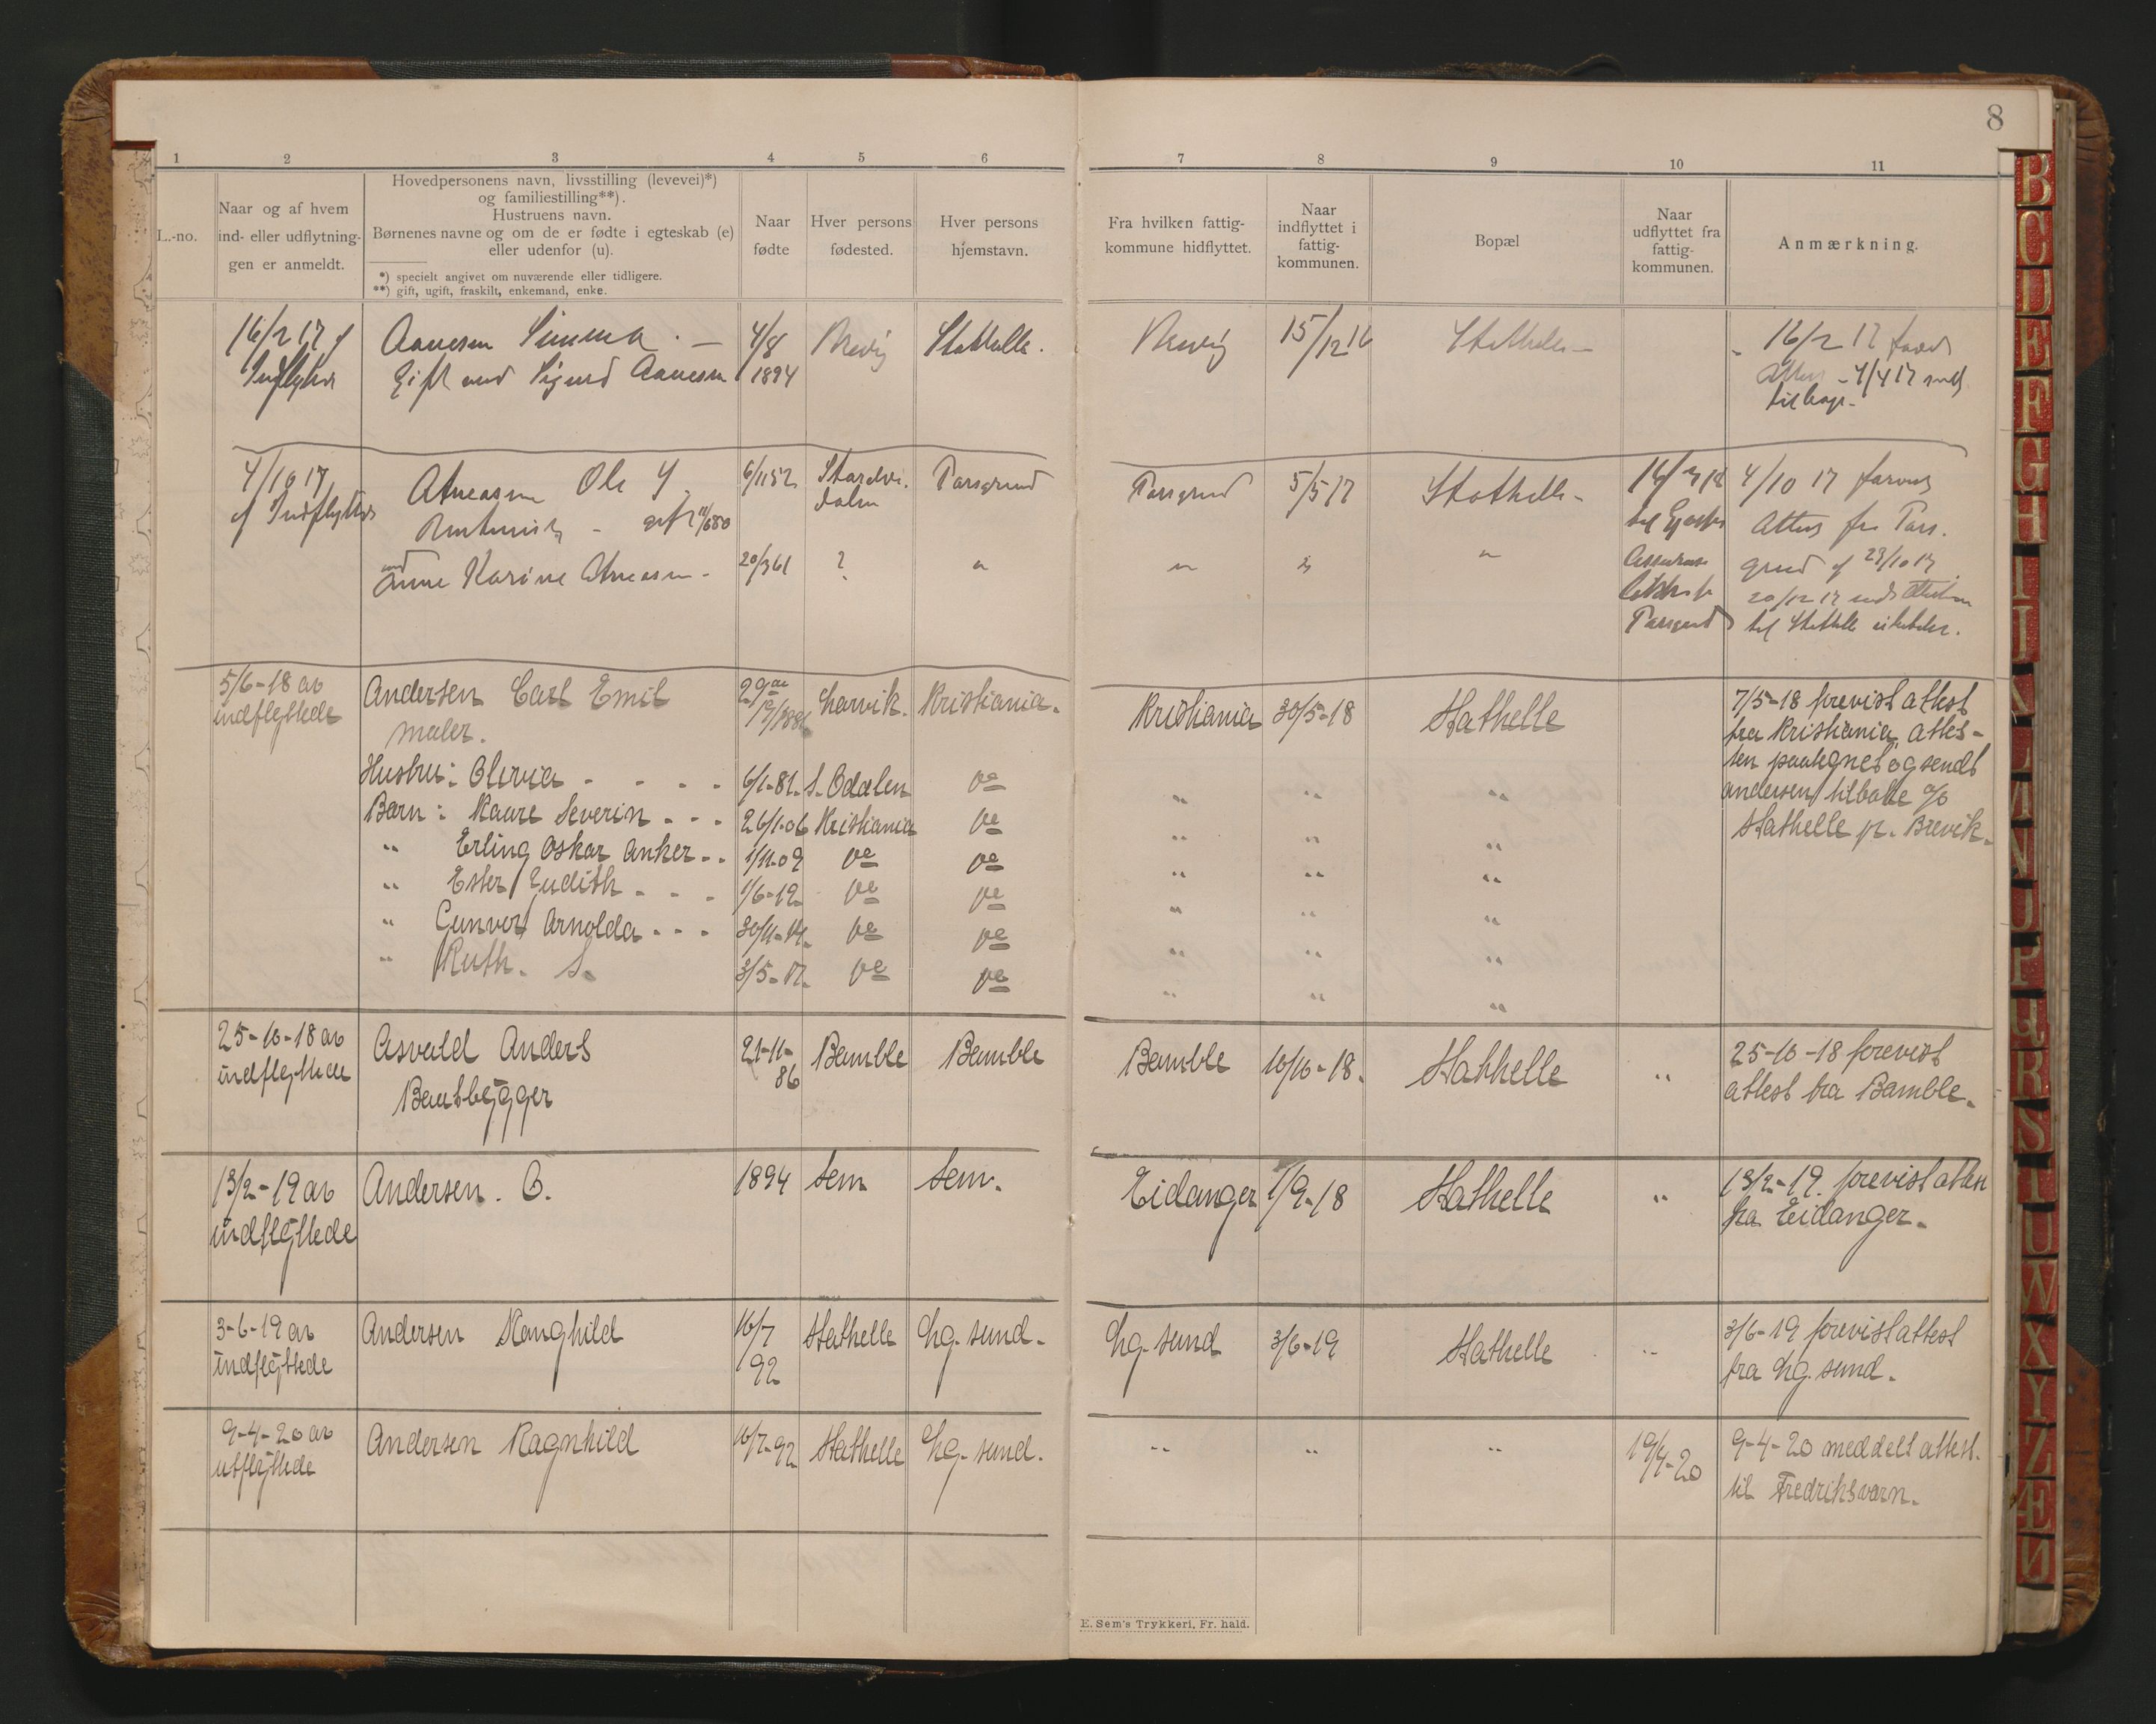 8
1 2 3 4 5 6 7 8 9 10 11
L.-no.
Naar og af hvem
ind- eller udflytnin-
gen er anmeldt.
Hovedpersonens navn, livsstilling (levevei)*)
og familiestilling**).
Hustruens navn.
Børnenes navne og om de er fødte i egteskab (e)
eller udenfor (u).
*) specielt angivet om nuværende eller tidligere.
**) gift, ugift, fraskilt, enkemand, enke.
Naar
fødte
Hver persons
fødested.
Hver persons
hjemstavn.
Fra hvilken fattig-
kommune hidflyttet.
Naar
indflyttet i
fattig-
kommunen.
Bopæl
Naar
udflyttet fra
fattig-
kommunen.
Anmærkning.
16/2 17 Aanesen 4/8 Brevig Stathelle. Brevig 15/12 16 Stathelle - 16/2 17
Indflyttet Gift med Sigurd Aanesen 1894 4/4 17
tilbage -
4/10 17 Ole 6/1152 Porsgrund Porsgrund 5/5 17 Stathelle - 4/10 17
af Indflyttet gift 11/680 Attest fra Pors.
Anne Karine 20/361 ? " " " " grund 23/10 17
20/12 17
Porsgrund til Stathelle
5/6-18 av Andersen Carl Emil Larvik. Kristiania. Kristiania 30/5-18 Stathelle 7/5-18 forevist attest
indflyttede maler. fra Kristiania, attes-
ten paategnet og sendt
Hustru: Olivia - - - - 6/1-81. S. Odalen do " " " andersen tilbake c/o
Barn: Kaare Severin - - - 26/1-06 Kristiania do " " " Stathelle pr. Brevik.
" Erling Oskar Anker - - 1/11-09 do do " " "
" Ester Judith - - - 1/6-12 do do " " "
" Gunvor Arnolda - - - 30/11-14. do do " " "
" Ruth. S. 3/5-17. do do " " "
25-10-18 av Asvald Anders 21-11- Bamble Bamble Bamble 10/10-18. Stathelle " 25-10-18 forevist
indflyttede Baatbygger 86 attest fra Bamble.
13/2-19 av Andersen. O. 1894 Sem Sem. Eidanger 1/9-18 Stathelle " 13/2-19. forevist attest
indflyttede fra Eidanger.
3-6-19 av Andersen Ranghild 16/7 Stathelle Lg. sund. Lg. sund 3/6-19 Stathelle " 3/6-19 forevist attest
indflyttede 92 fra Lg. sund.
9-4-20 av Andersen Ragnhild 16/7-92 Stathelle Lg. sund. " " " 19/4-20 9-4-20 meddelt attest.
utflyttede til Fredriksværn.
E. Sem's Trykkeri, Fr. hald.
B
C
D
E
F
G
H
I
J
K
L
M
N
O
P
Q
R
S
T
U
W
X
Y
Z
Æ
Ø